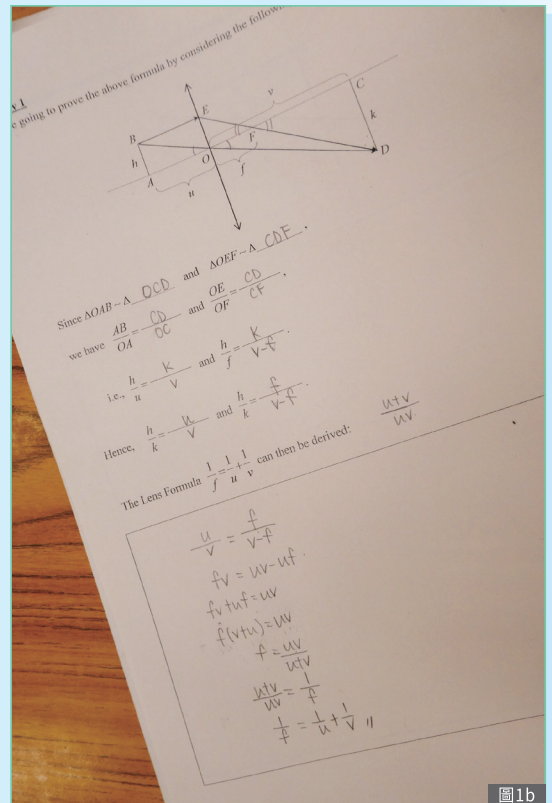 y 1
e going to prove the above formula by considering the
E
v
C
B
F
k
h
O
D
A
f
u
Since ΔOAB ~ Δ OCD and ΔOEF ~ Δ CDF .
we have AB/OA = CD/OC and OE/OF = CD/CF ,
i.e., h/u = k/v and h/f = k/v-f .
Hence, h/k = u/v and h/k = f/v-f .
The Lens Formula 1/f = 1/u + 1/v can then be derived:
u+v/uv
u/v = f/v-f
fv = uv-uf .
fv+uf=uv
f(v+u)=uv
f = uv/u+v
u+v/uv = 1/f
1/f = 1/u + 1/v //
圖1b